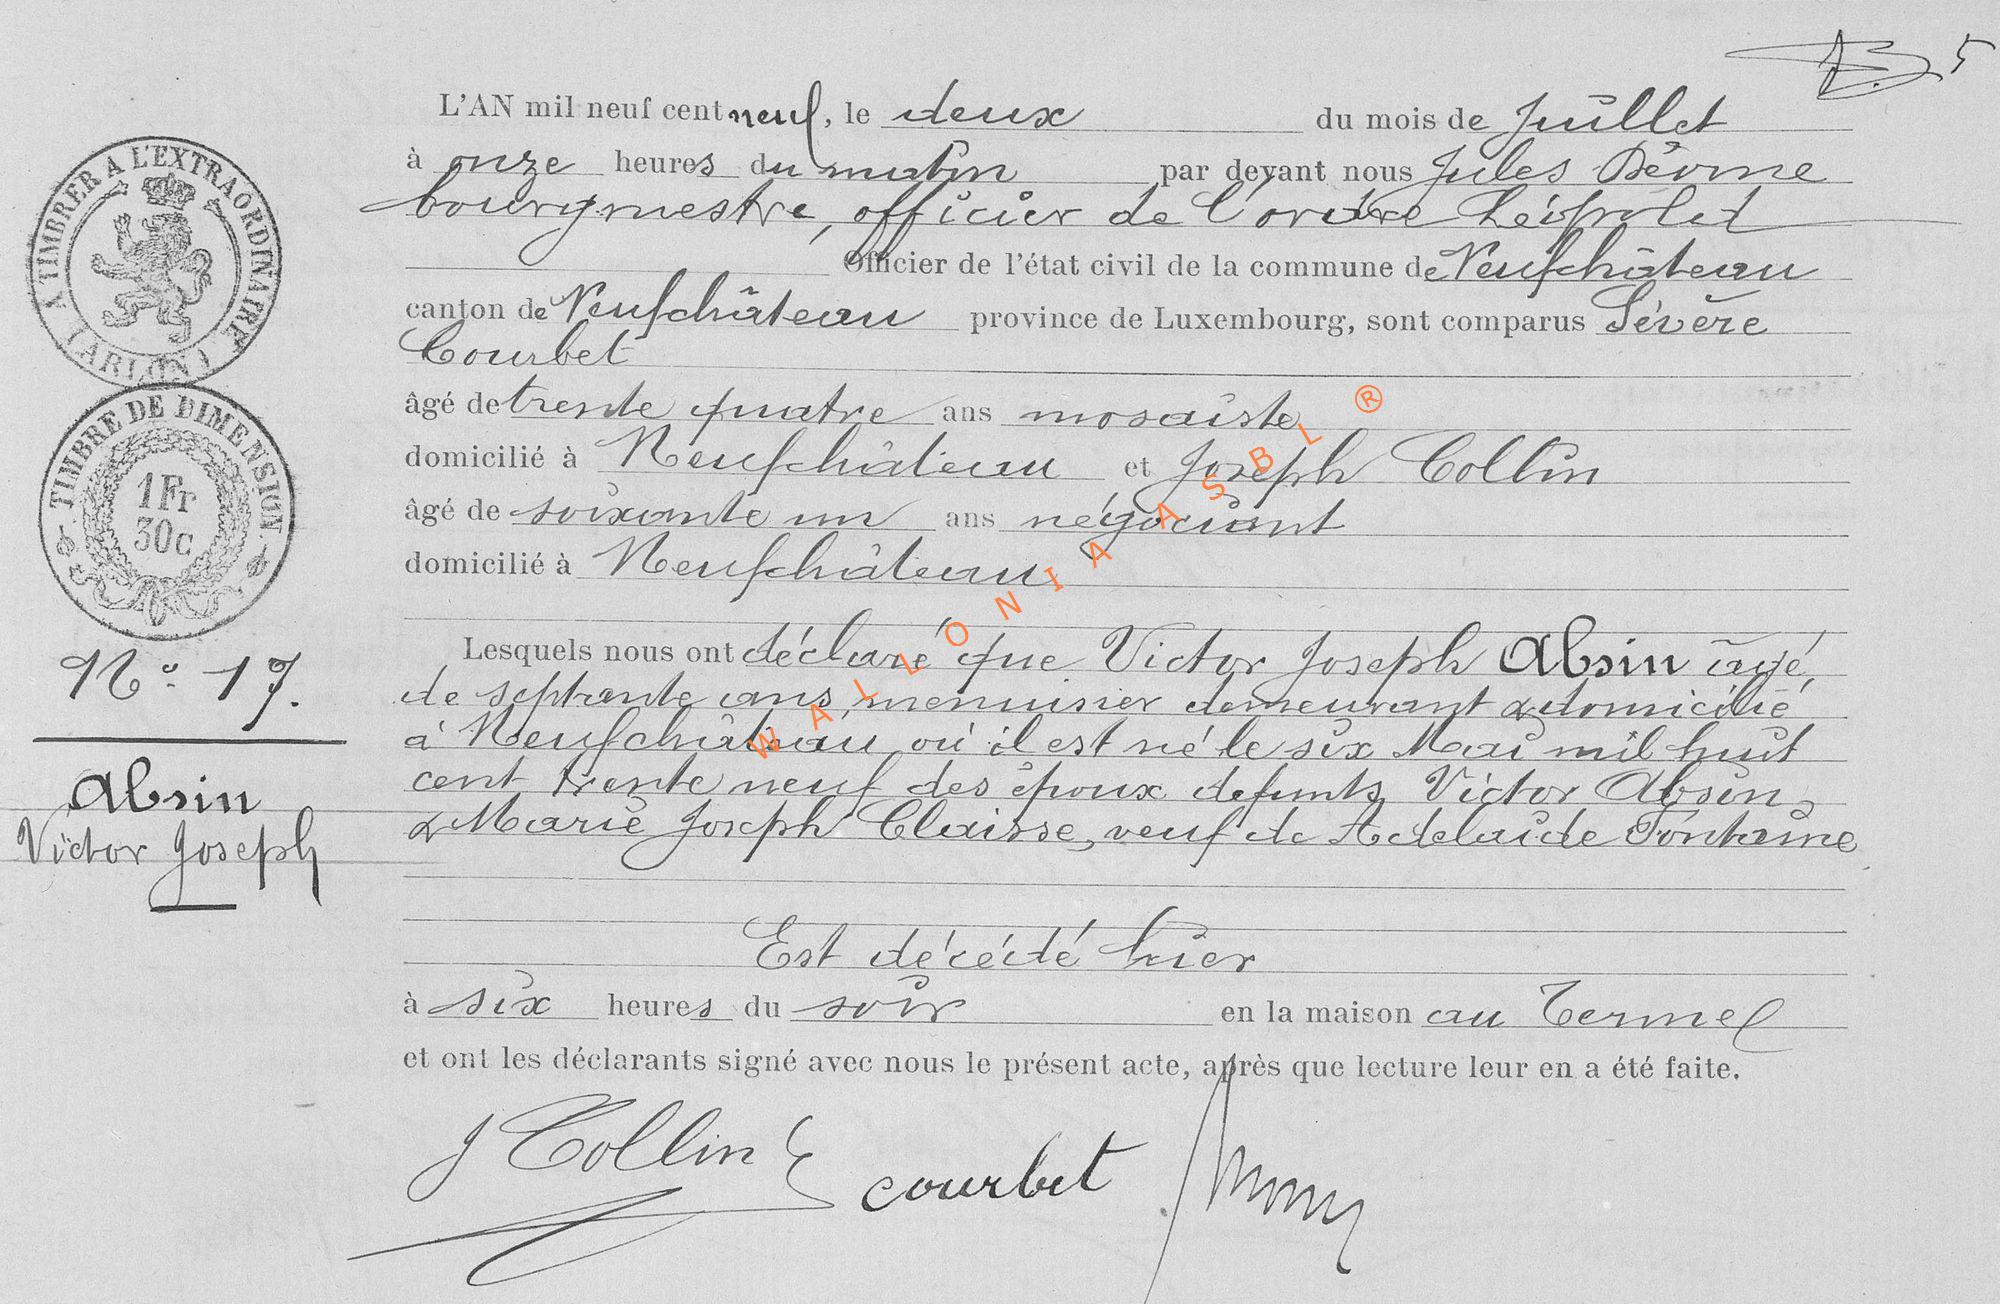 5
L'AN mil neuf cent neuf, le deux du mois de Juillet
à onze heures du matin par devant nous Jules
bourgmestre, officier de l'ordre Léopold
Officier de l'état civil de la commune de Neufchâteau
canton de Neufchâteau province de Luxembourg, sont comparus Sévère
Courbet
âgé de trente quatre ans mosaiste
domicilié à Neufchâteau et Joseph Collin
âgé de soixante un ans négociant
domicilié à Neufchâteau
Lesquels nous ont déclaré que Victor Joseph Absin âgé,
de septante ans, menuisier demeurant & domicilié
à Neufchâteau où il est né le six Mai mil huit
cent trente neuf des époux defunts Victor Absin,
& Marie Joseph Claisse, veuf de Adelaïde Fontaine
Est décédé hier
à six heures du soir en la maison au Termel
et ont les déclarants signé avec nous le présent acte, après que lecture leur en a été faite.
J Collin S courbet
A TIMBRER A L'EXTRAORDINAIRE
(ARLON)
TIMBRE DE DIMENSION.
1Fr
30c
No. 17.
Absin
Victor Joseph
WALLONIA ASBL ®